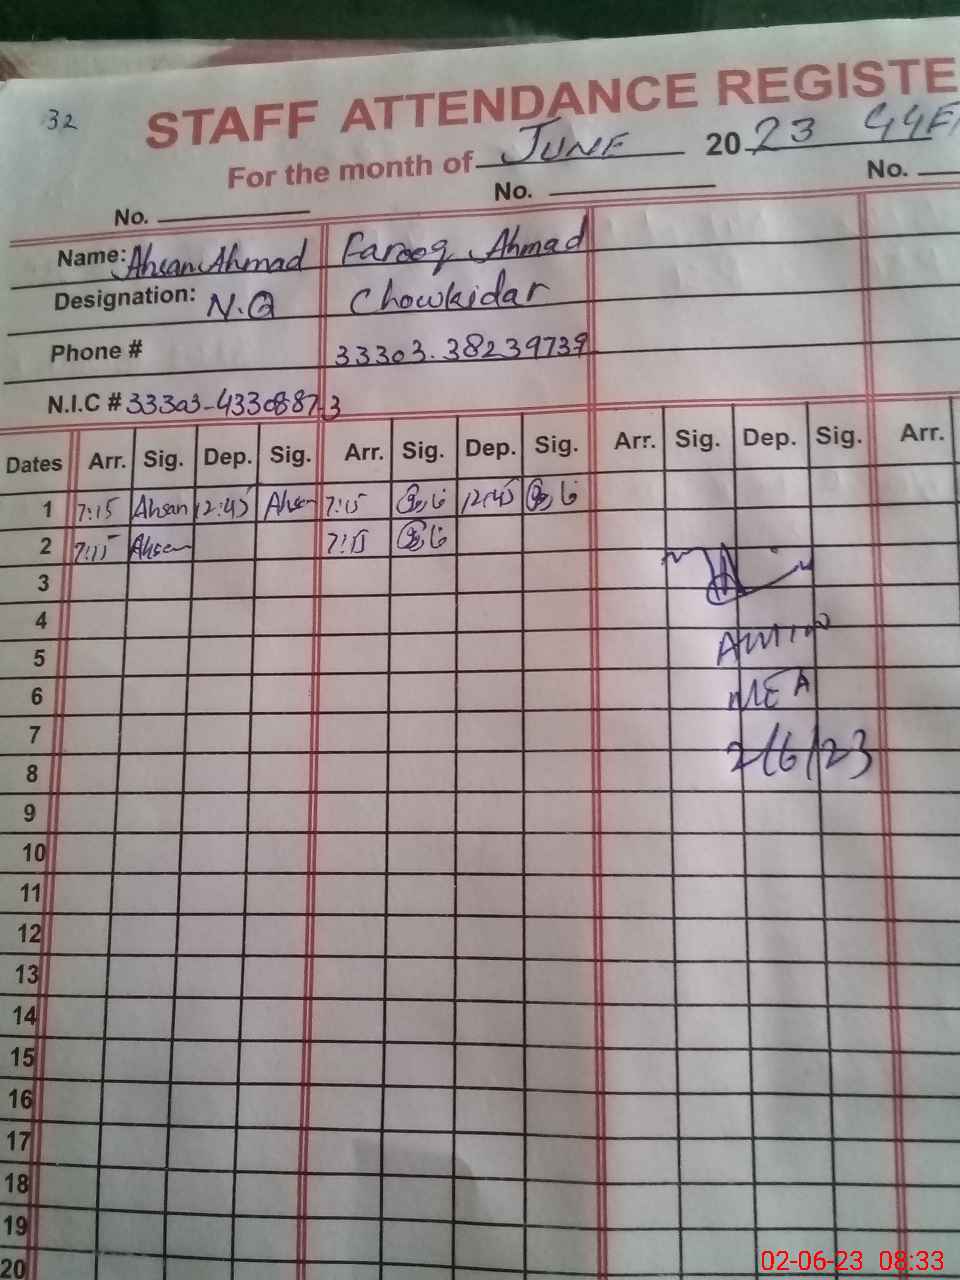 32
STAFF ATTENDANCE REGISTE
For the month of JUNE 2023
No. No. No.
Name: Ahsan Ahmad Farooq Ahmad
Designation: N.Q Chowkidar
Phone # 33303.38239739
N.I.C # 33303-4330887-3
Dates Arr. Sig. Dep. Sig. Arr. Sig. Dep. Sig. Arr. Sig. Dep. Sig. Arr.
1 7:15 Ahsan 12:45 Ahsan 7:15 12:45
2 7:15 Ahsan 7:15
3
4
5
MEA
6
7
2/6/23
8
9
10
11
12
13
14
15
16
17
18
19
20
02-06-23 08:33